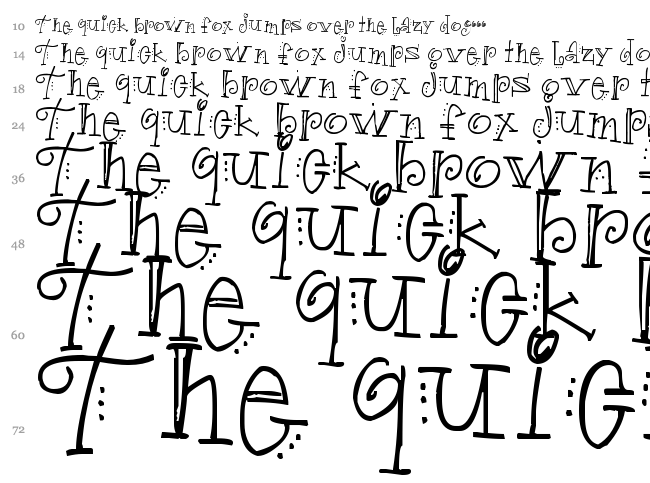 10 The quick brown fox jumps over the lazy dog...
14 The quick brown fox jumps over the lazy do
18 The quick brown fox jumps over t
24 The quick brown fox jump
36 The quick brown
48 The quick bro
60 The quick
72 The quic